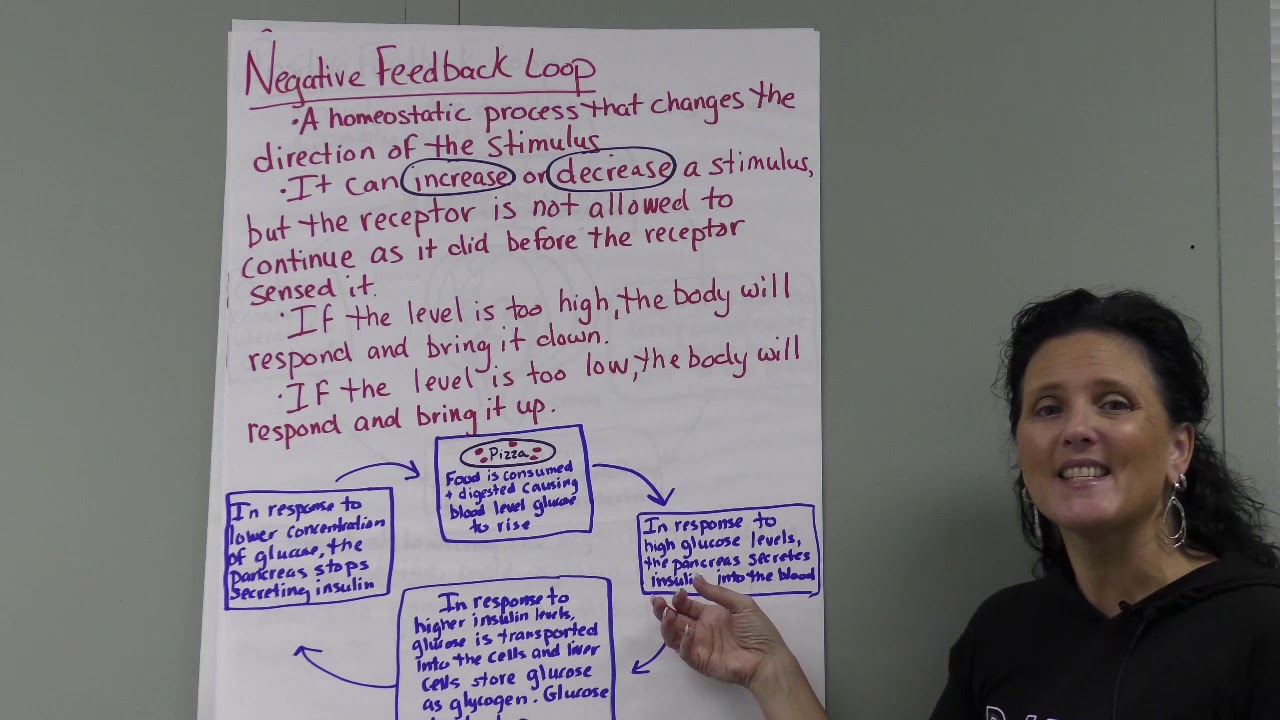 Negative Feedback Loop
• A homeostatic process that changes the
direction of the stimulus
• It can increase or decrease a stimulus,
but the receptor is not allowed to
continue as it did before the receptor
sensed it.
• If the level is too high, the body will
respond and bring it down.
• If the level is too low, the body will
respond and bring it up.
Pizza
Food is consumed
+ digested causing
blood level glucose
to rise
In response to
high glucose levels,
the pancreas secretes
insulin into the blood
In response to
higher insulin levels,
glucose is transported
into the cells and liver
cells store glucose
as glycogen. Glucose
In response to
lower concentration
of glucose, the
pancreas stops
secreting insulin